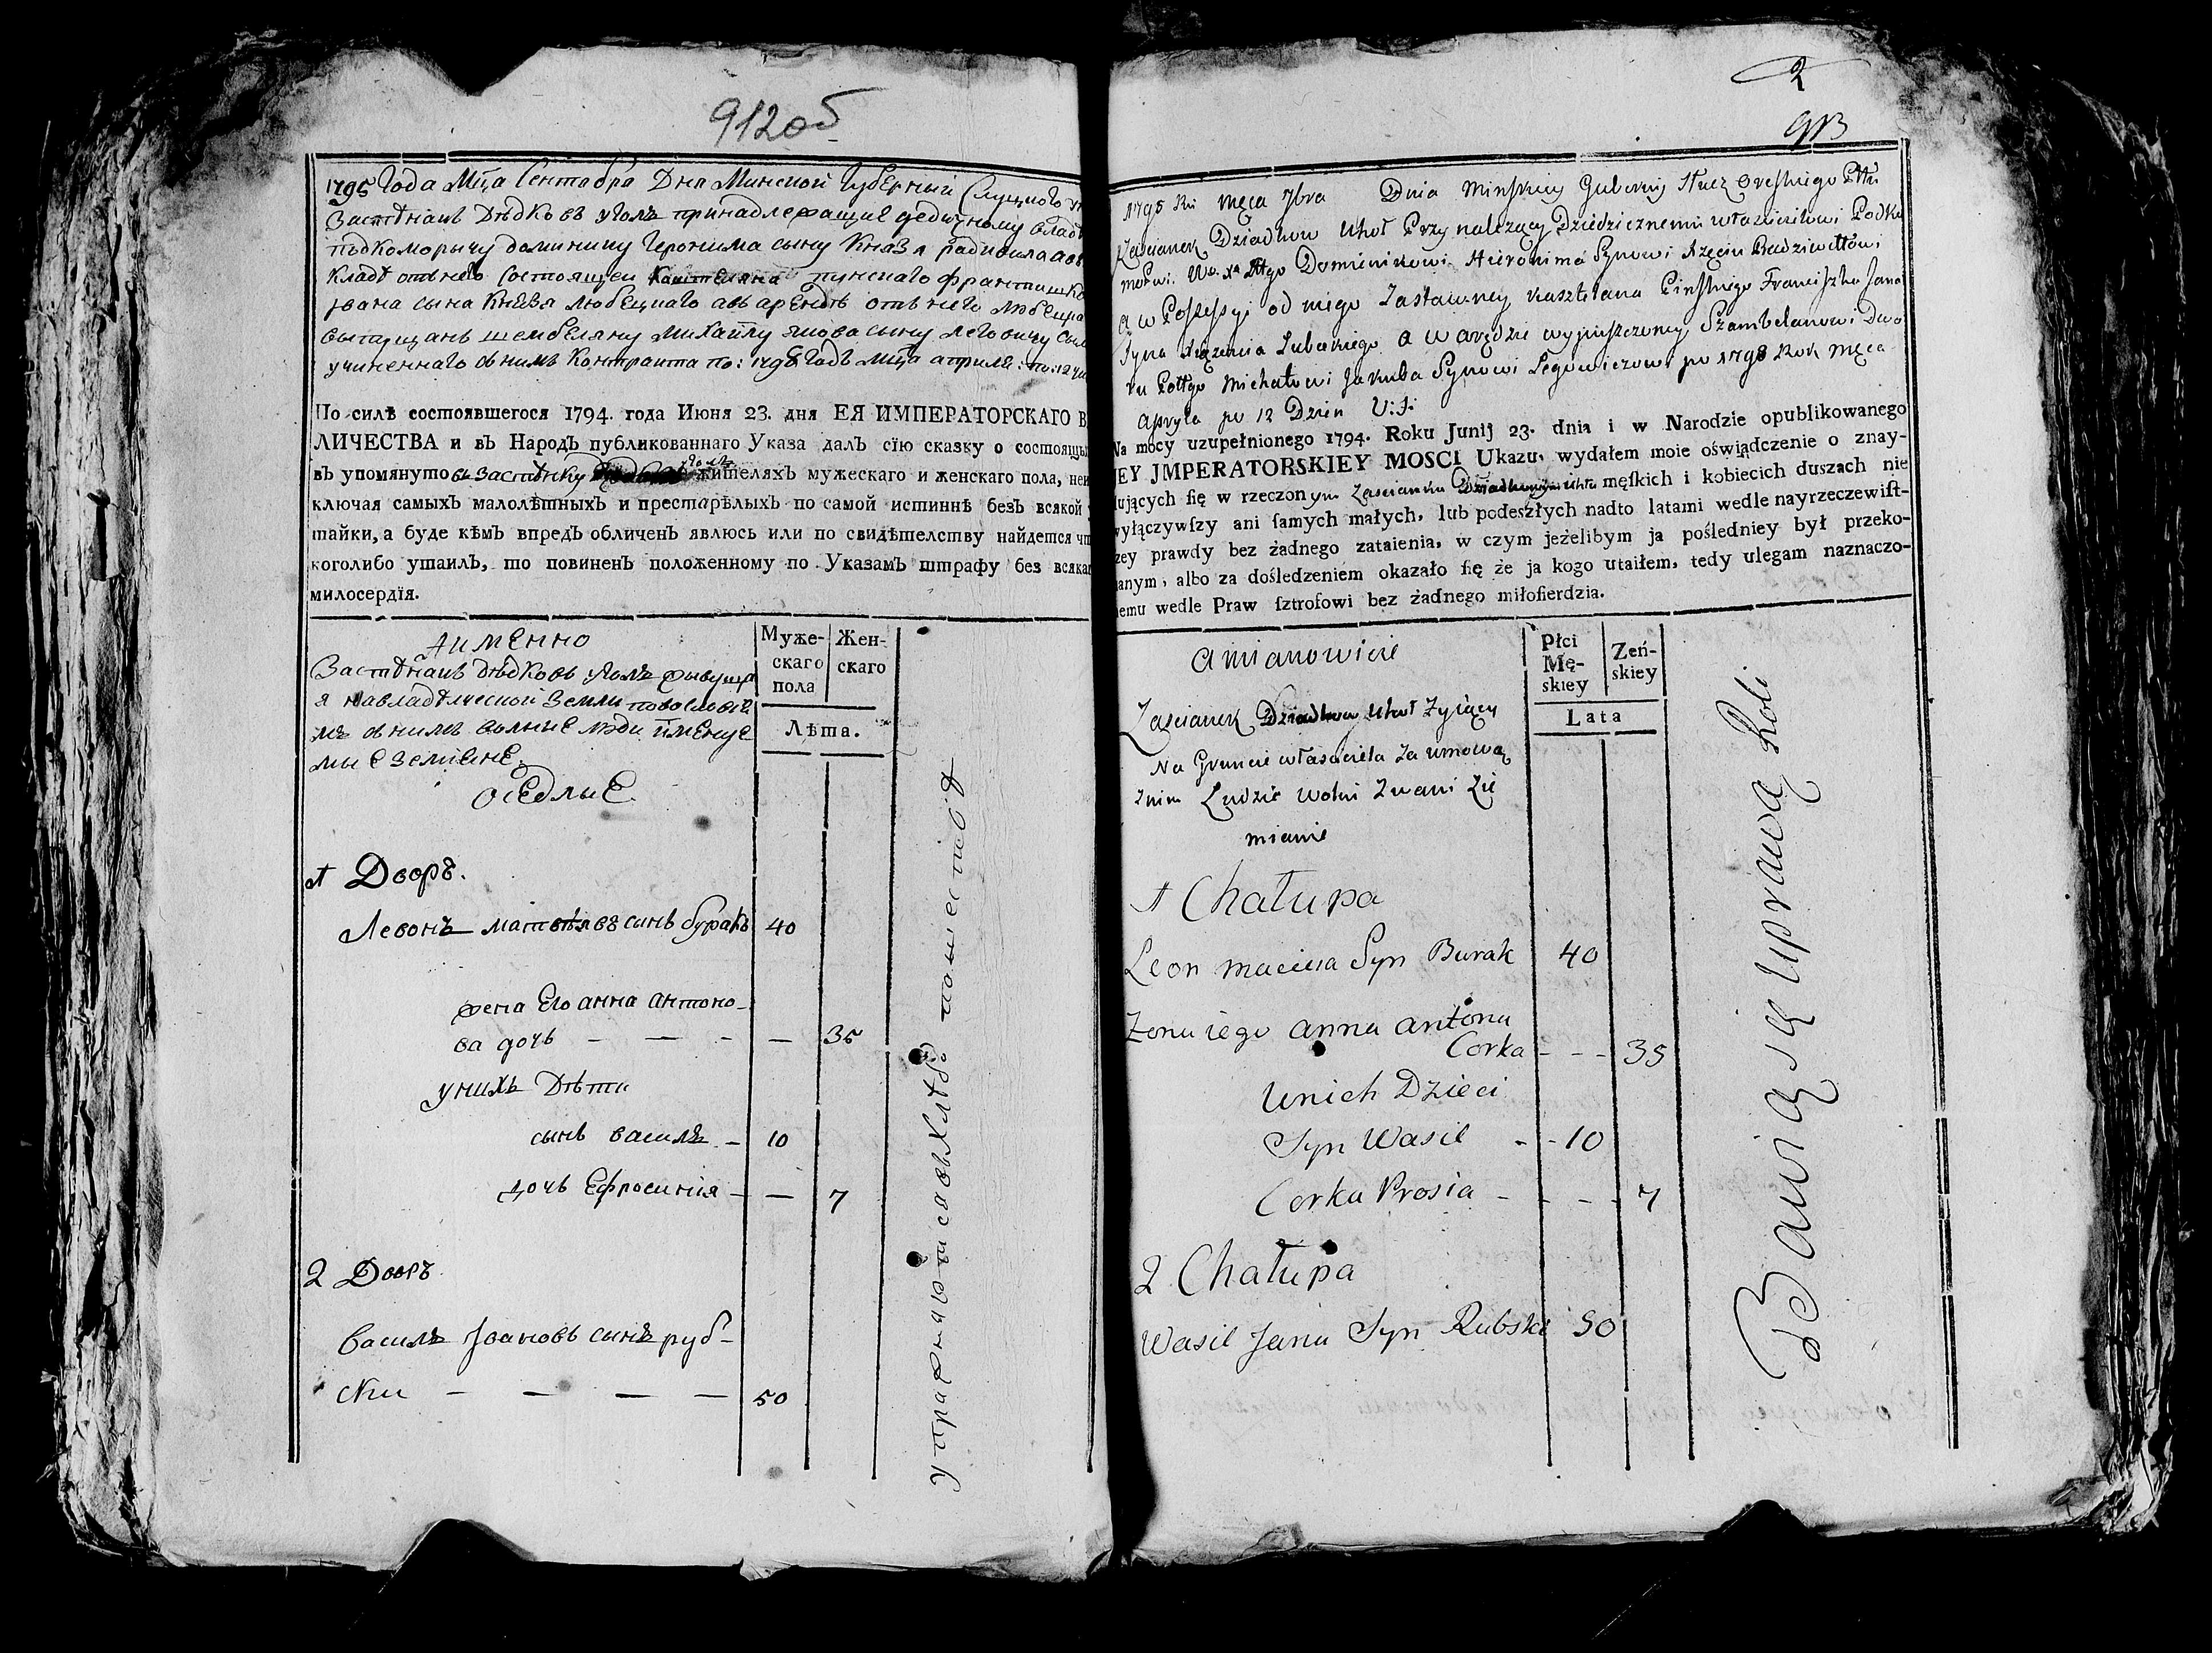 912об
1795 Года Мца Сентября Дня Минской Губерний Слуцкого
Застѣнакъ Дѣдковъ Уголъ принадлежащие дедичному
подкоморычу доминику Героним сыну Княз я радивила а въ
закладѣ отъ него состоящей Каштеляна пинскаго францишка
Ивана сына Князя любецкаго авъ арендѣ отъ него
шембеляну Михайлу якова сыну легович
учиненнаго съ нимъ Контракта по: 1798 Годъ Мца априля: по: 12
По силѣ состоявшегося 1794. года Июня 23. дня ЕЯ ИМПЕРАТОРСКАГО В
ЛИЧЕСТВА и въ Народъ публикованнаго Указа далъ сїю сказку о состоящи
въ упомянуто въ Застѣнку Уголъ жителяхъ мужескаго и женскаго пола, неи
ключая самыхъ малолѣтныхъ и престарѣлыхъ по самой истиннѣ безъ всякой у
тайки, а буде кѣмъ впредь обличенъ явлюсь или по свидѣтелству найдется чт
коголибо утаилъ, то повиненъ положенному по Указамъ штрафу без всякаг
милосердїя.
Аименно
Застѣнакъ Дѣдковъ Уголъ живущи
я навладѣлческой Земли
съ нимъ вольные люди имену е
мы е земяне.
Оседлые
Муже-
скаго
пола
Жен-
скаго
Лѣта.
1 Дворъ.
Левонъ матвѣявъ сынъ буракъ 40
жена Его анна антоно-
ва дочь — — — — 35
унихъ Дѣти
сынъ василь — 10
дочь Ефросиния — — 7
2 Дворъ
Василь Ивановъ сынъ руб-
ски — — — — 50
2
913
1795 Ru Męca 7bra Dnia Minskiey Gubernij
Zascianek Dziadkow Uhoł Przynalezący Dziedzicznemu własscicilowi Podko
morzwi Dominikowi Hieronima Synowi Xzęciu Radziwiłłowi
a w Possesyi od niego Zastawney kasztelana Pinskiego Franciszka Jana
Syna Xiązencia Lubeckiego a w arędzie wypuszczoney Szambelanowi Dwo
ru Michałowi Jakuba Synowi Legowiczowi po 1798 Rok Męca
Apryla po 12 Dzien V: S:
Na mocy uzupełnionego 1794. Roku Junij 23. dnia i w Narodzie opublikowanego
JEY JMPERATORSKIEY MOSCI Ukazu, wydałem moie oświądczenie o znay-
dujących ſię w rzeczonym Zascianku Uhle męſkich i kobiecich duszach nie
wyłączywſzy ani ſamych małych, lub podeszłych nadto latami wedle nayrzeczewiſt-
zey prawdy bez żadnego zataienia, w czym jeżelibym ja poſledniey był przeko-
anym, albo za dośledzeniem okazało ſię że ja kogo utaiłem, tedy ulegam naznaczo-
nemu wedle Praw ſztrofowi bez żadnego miłoſierdzia.
A mianowicie
Zascianek Dziadkow Uhoł Zyiący
Na Gruncie własciciela Za umową
Znim Ludzie Wolni Zwani Zie
mianie
Płci
Mę-
skiey
Zeń-
skiey
Lata
1 Chałupa
Leon Macieia Syn Burak 40
Zona iego anna antona
Corka - - - 35
Unich Dzieci
Syn Wasil - - 10
Corka Prosia - - - - 7
2 Chałupa
Wasil Jana Syn Rubski 50
Bawią się uprawą Roli